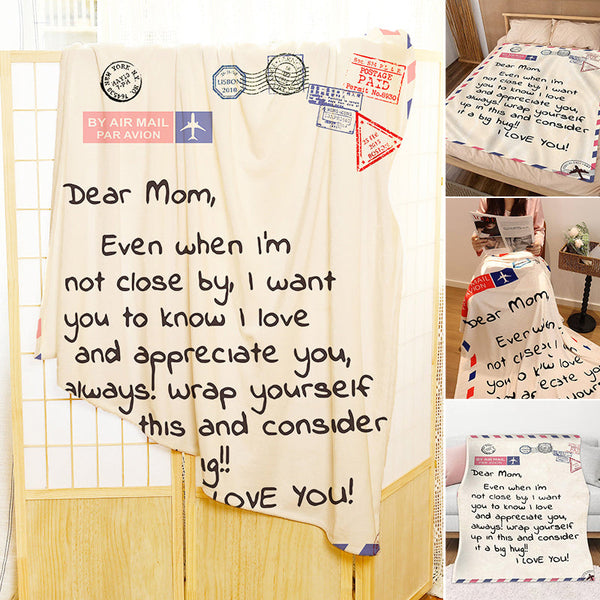 NEW YORK N.Y.
LISBON
2018
POSTAGE
PAID
Permit No.8930
BY AIR MAIL
PAR AVION
Dear Mom,
Even when i'm
not close by, I want
you to know I love
and appreciate you,
always! wrap yourself
this and consider
ig!!
I LOVE YOU!
Dear Mom,
Even when i'm
not close by I want
you to know I love
and appreciate you,
always! wrap yourself
up in this and consider
it a big hug!!
I LOVE YOU!
MAIL
AVION
Dear Mom,
Even when
not close
you to know love
ciate you
BY AIR MAIL
PAR AVION
Dear Mom,
Even when i'm
not close by I want
you to know I love
and appreciate you,
always! wrap yourself
up in this and consider
it a big hug!!
I LOVE YOU!